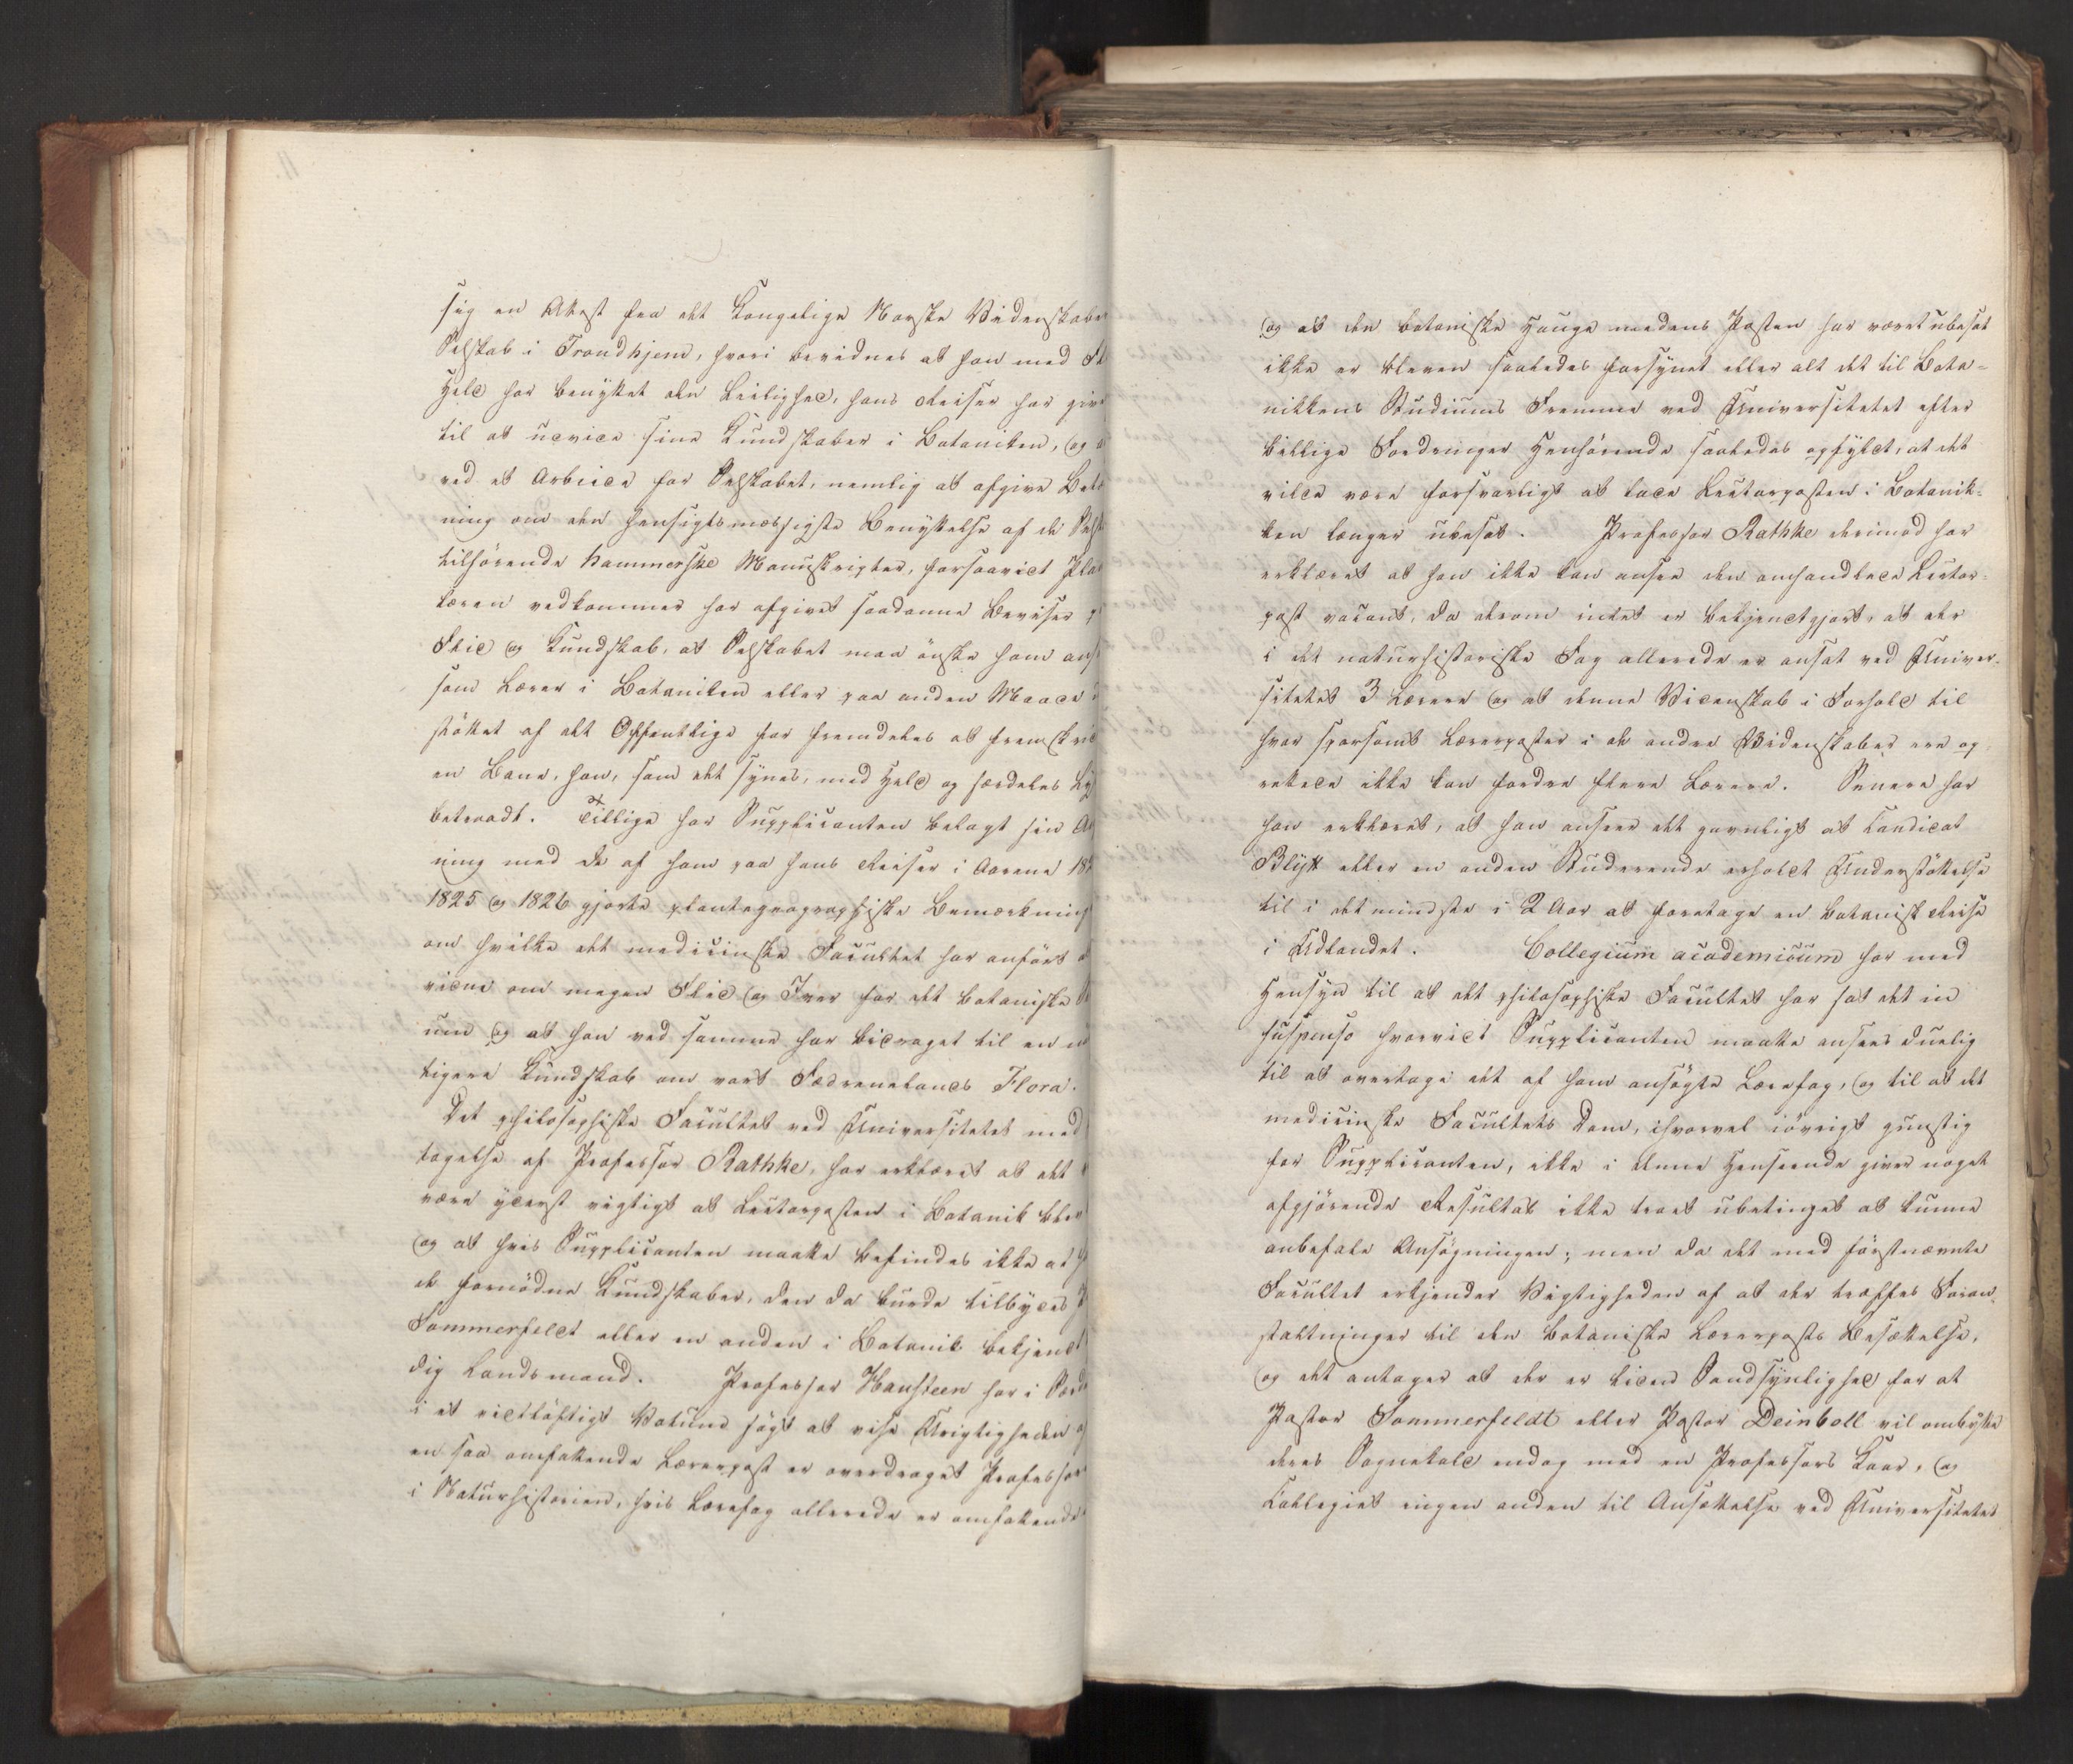 11.
sig en Attest fra det Kongelige Norske Videnskabe
Selskab i Trondhjem, hvori bevidnes at han med Fl
Held har benyttet den Leilighed, hans Reiser har give
til at udvide sine Kundskaber i Botaniken, og
ved et Arbeide for Selskabet, nemlig at afgive Bet
ning om den hensigtsmæssigste Benyttelse af de Selsk
tilhørende Hammerske Manuskripter, forsaavidt Pla
læren vedkommer har afgivet saadanne Beviser p
Flid og Kundskab, at Selskabet maa ønske ham ans
som Lærer i Botaniken eller paa anden Maade
støttet af det Offentlige for fremdeles at fremskrid
en Bane, han, som det synes, med Held og særdeles Ly
betraadt. Tillige har Supplicanten belagt sin An
ning med de af ham paa hans Reiser i Aarene 182
1825 og 1826 gjorte plantegeographiske Bemærkning
om hvilke det medicinske Facultet har anført a
vidne om megen Flid og Iver for det botaniske S
um og at han ved samme har bidraget til en n
tigere Kundskab om vort Fædrenelands Flora.
Det philosophiske Facultet ved Universitetet med
tagelse af Professor Rathke, har erklæret at det
være yderst vigtigt at Lectorposten i Botanik blev
og at hvis Supplicanten maatte befindes ikke at h
de fornødne Kundskaber, den da burde tilbydes P
Sommerfeldt eller en anden i Botanik bekjendt
dig Landsmand. Professor Hansteen har i Særd
i et vidtløftigt Votum søgt at vise Urigtigheden a
en saa omfattende Lærerpost er overdraget Professor
i Naturhistorien, hvis Lærefag allerede er omfattende
og at den botaniske Hauge medens Posten har været ubesat
ikke er bleven saaledes forsynet eller alt det til Bota-
nikkens Studiums Fremme ved Universitetet efter
billige Fordringer Henhørende saaledes opfyldt, at det
vilde være forsvarligt at lade Lectorposten i Botanik-
ken længer ubesat. Professor Rathke derimod har
erklæret at han ikke kan ansee den omhandlede Lector-
post vacant, da derom intet er bekjendtgjort, at der
i det naturhistoriske Fag allerede er ansat ved Univer-
sitetet 3 Lærere og at denne Videnskab i Forhold til
hvor sparsomt Lærerposter i de andre Videnskaber ere op-
rettede ikke kan fordre flere Lærere. Senere har
han erklæret, at han anseer det gavnligt at Candidat
Blytt eller en anden Studerende erholdt Understøttelse
til i det mindste i 2 Aar at foretage en botanisk Reise
i Udlandet. Collegium academicum har med
Hensyn til at det philosophiske Facultet har sat det in
suspenso hvorvidt Supplicanten maatte ansees duelig
til at overtage det af ham ansøgte Lærefag, og til at det
medicinske Facultets Dom, ihvorvel iøvrigt gunstig
for Supplicanten, ikke i denne Henseende giver noget
afgjørende Resultat ikke troet ubetinget at kunne
anbefale Ansøgningen; men da det med førstnævnte
Facultet erkjender Vigtigheden af at der træffes Foran-
staltninger til den botaniske Lærerposts Besættelse,
og det antager at der er liden Sandsynlighed for at
Pastor Sommerfeldt eller Pastor Deinboll vil ombytte
deres Sognekald endog med en Professors Kaar, og
Collegiet ingen anden til Ansættelse ved Universitetet